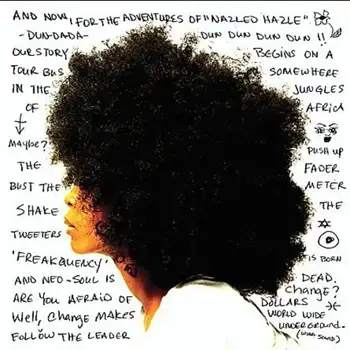 AND NOW, FOR THE ADVENTURES OF "NAZLED HAZLE"
-DUN-DADA- DUN DUN DUN DUN !!
OUR STORY BEGINS ON A
TOUR BUS SOMEWHERE
IN THE JUNGLES
OF AFRICA
MAYBE?
PUSH UP
THE FADER
BUST THE METER
SHAKE THE
TWEETERS
'FREAKQUENCY' IS BORN
AND NEO-SOUL IS DEAD.
ARE YOU AFRAID OF Change?
Well, CHANGE MAKES DOLLARS
WORLD WIDE
FOLLOW THE LEADER UNDERGROUND.